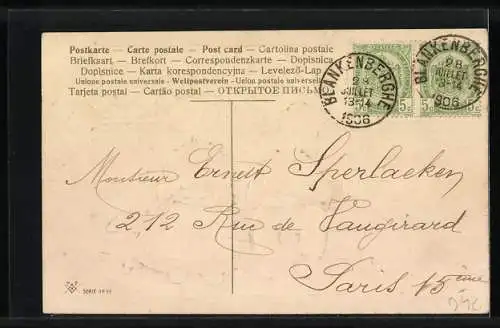 Postkarte — Carte postale — Post card — Cartolina postale
Briefkaart — Brefkort — Correspondenzkarte — Dopisnica
Dopisnice — Karta korespondencyjna — Levelező-Lap
Unione postale universale - Weltpostverein - Union postale universelle
Tarjeta postal — Cartão postal — ОТКРЫТОЕ ПИСЬМО
BLANKENBERGHE
28
JUILLET
13-14
1906
5c
BLANKENBERGHE
28
JUILLET
13-14
1906
5c
Monsieur Ernest Sperlaeken
212 Rue de Vaugirard
Paris 15ème
SERIE